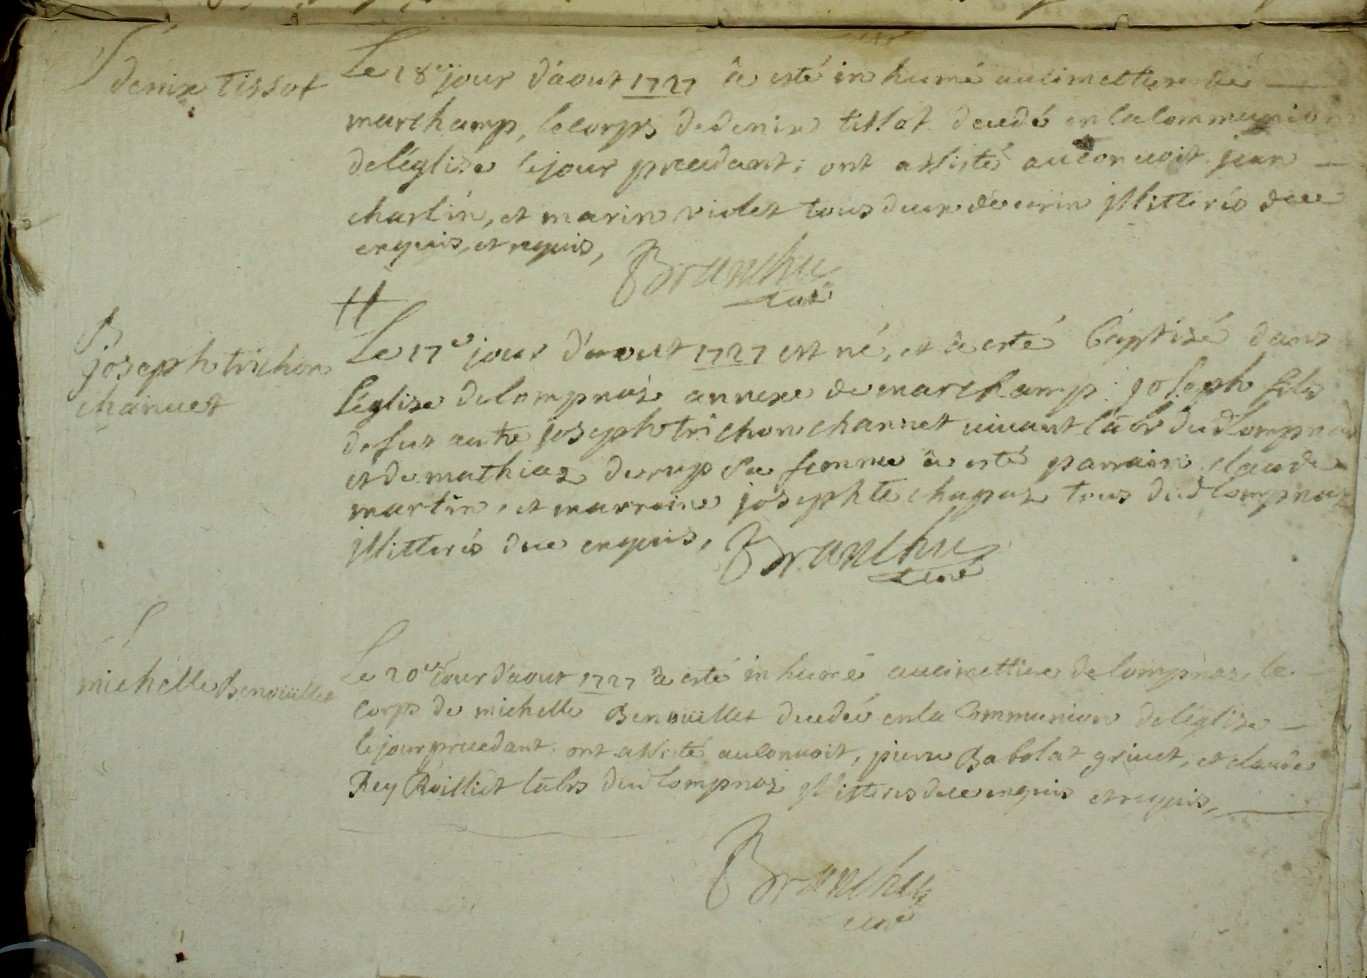 denise tissot
Le 18e jour d'aout 1727 â esté inhumé au cimettiere de
marchamp, le corps de denise tissot decedé en la Communion
de léglise le jour precedant; ont assisté au convoit jean
charlin, et marin violet tous deux illitterés de ce
enquis, et requis,
Branchu
curé
joseph trichon
channet
Le 17e jour d'aout 1727 est né, et â esté baptisé dans
léglise de lompnaz annexe de marchamp joseph fils
de fut autre joseph trichon channet vivant labr dud lompnaz
et de mathiaz derup sa femme â esté parrain claude
martin, et marraine josephte chapuz tous dud lompnaz
illitterés de ce enquis,
Branchu
curé
michelle Benoüillet
Le 20e jour d'aout 1727 â esté inhumé au cimettiere de lompnaz le
corps de michelle Benoüillet decedeé en la Communion de léglise
le jour precedant ont assisté au convoit, pierre Babolat grivet, et claude
Rey Roilliet labrs dud lompnaz illitterés de ce enquis et requis,
Branchu
curé